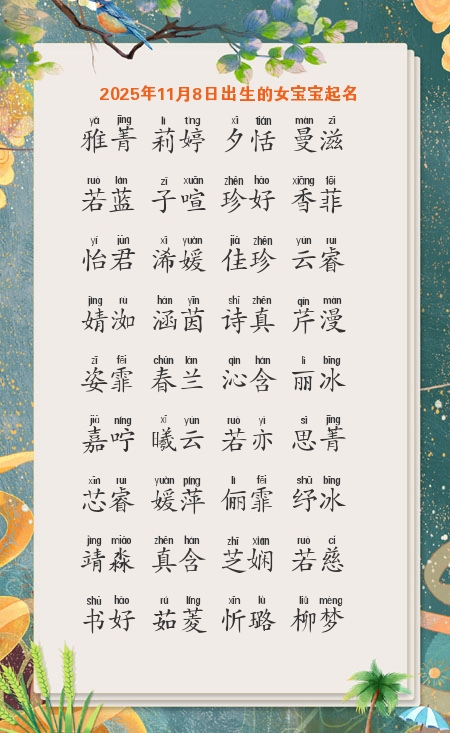 2025年11月8日出生的女宝宝起名
yǎ jīng lì tíng xī tián màn zī
雅菁 莉婷 夕恬 曼滋
ruò lán zǐ xuān zhēn hǎo xiāng fēi
若蓝 子喧 珍好 香菲
yí jūn xī yuàn jiā zhēn yún ruì
怡君 浠媛 佳珍 云睿
jìng rù hán yīn shī zhēn qín màn
婧洳 涵茵 诗真 芹漫
zī fēi chūn lán qìn hán lì bīng
姿霏 春兰 沁含 丽冰
jiā níng xī yún ruò yì sī jīng
嘉咛 曦云 若亦 思菁
xīn ruì yuàn píng lì fēi shū bīng
芯睿 媛萍 俪霏 纾冰
jìng miǎo zhēn hán zhī xián ruò cí
靖淼 真含 芝娴 若慈
shū hǎo rú líng xīn lù liǔ mèng
书好 茹菱 忻璐 柳梦